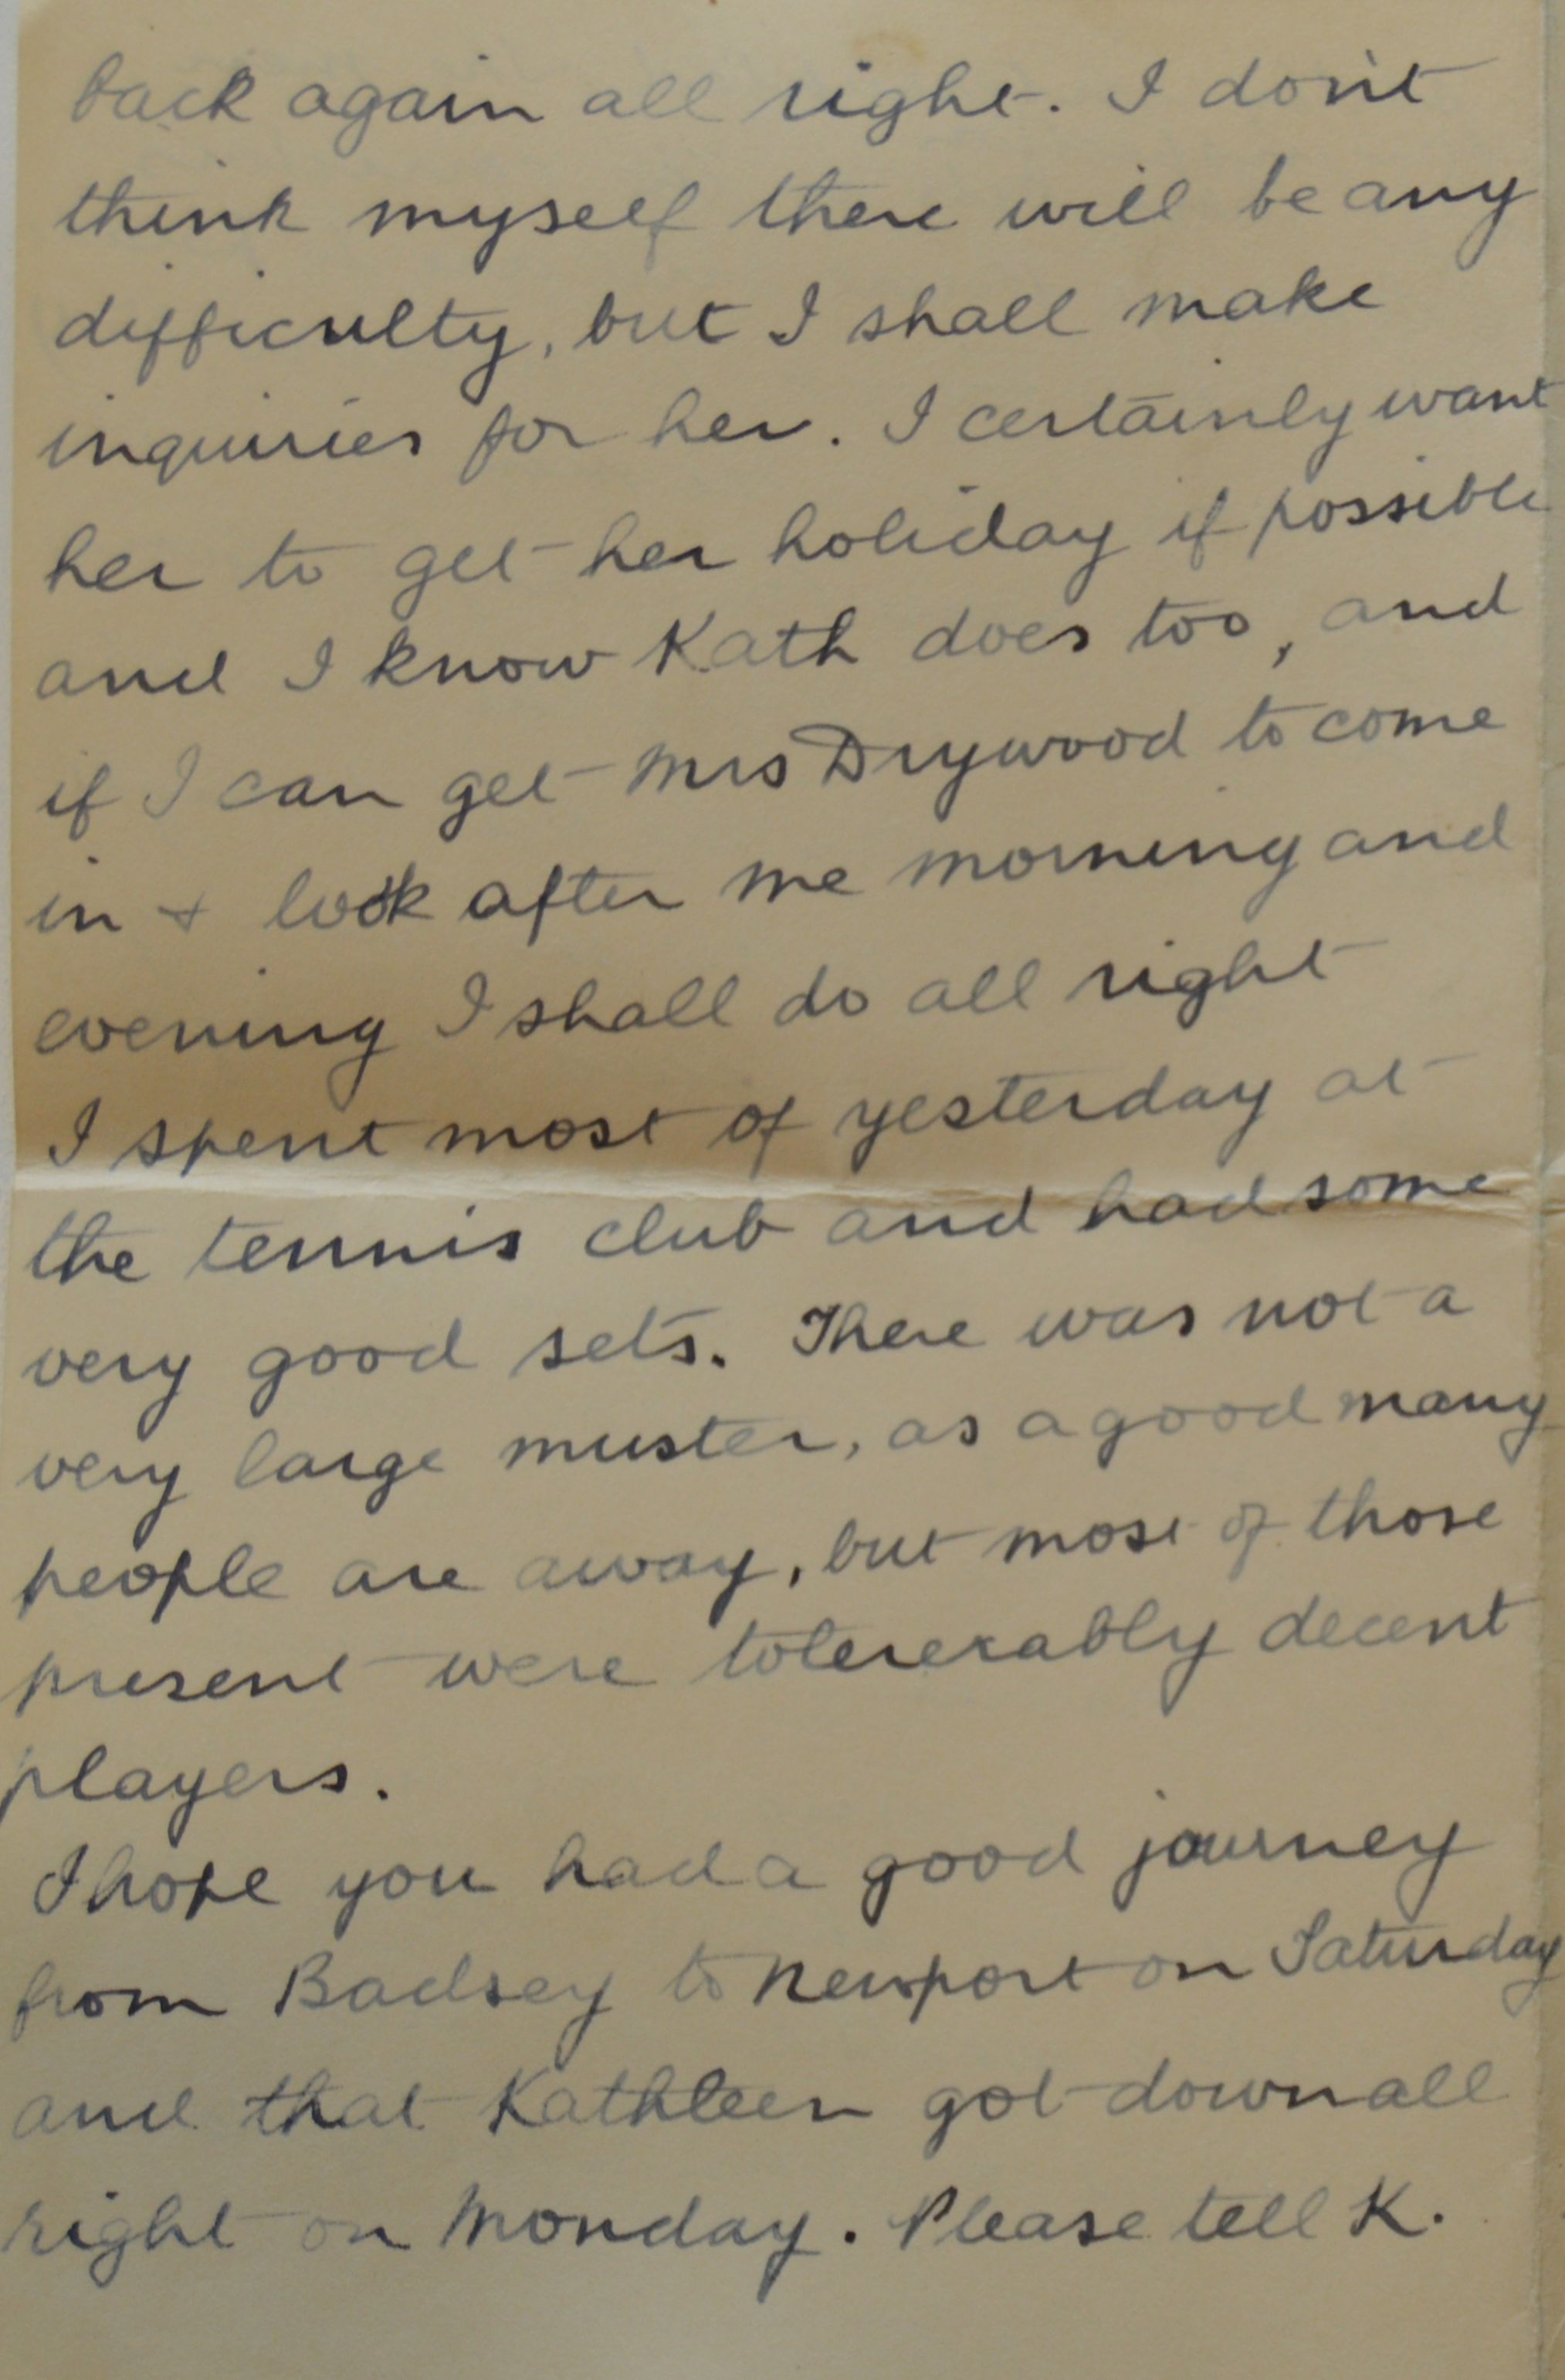 back again all right. I don't
think myself there will be any
difficulty, but I shall make
inquiries for her. I certainly want
her to get her holiday if possible
and I know Kath does too, and
if I can get Mrs Drywood to come
in & look after me morning and
evening I shall do all right
I spent most of yesterday at
the tennis club and had some
very good sets. There was not a
very large muster, as a good many
people are away, but most of those
present were tolererably decent
players.
I hope you had a good journey
from Badsey to Newport on Saturday
and that Kathleen got down all
right on Monday. Please tell K.